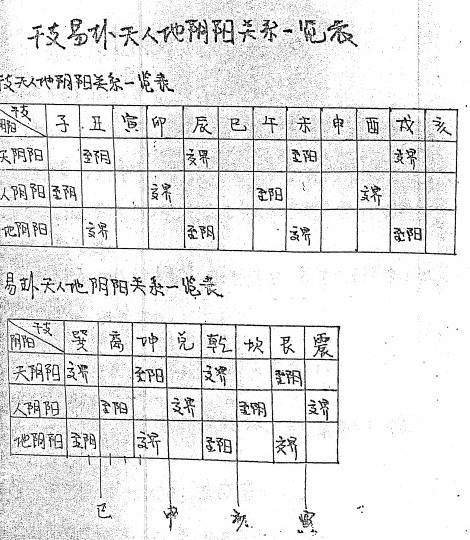 干支易卦天人地阴阳关系一览表
支天人地阴阳关系一览表
干支 阴阳 子 丑 寅 卯 辰 巳 午 未 申 酉 戌 亥
天阴阳 至阴 交界 至阳 交界
人阴阳 至阴 交界 至阳 交界
地阴阳 交界 至阴 交界 至阳
易卦天人地阴阳关系一览表
干支 阴阳 巽 离 坤 兑 乾 坎 艮 震
天阴阳 交界 至阳 交界 至阴
人阴阳 至阳 交界 至阴 交界
地阴阳 至阴 交界 至阳 交界
巳 申 亥 寅